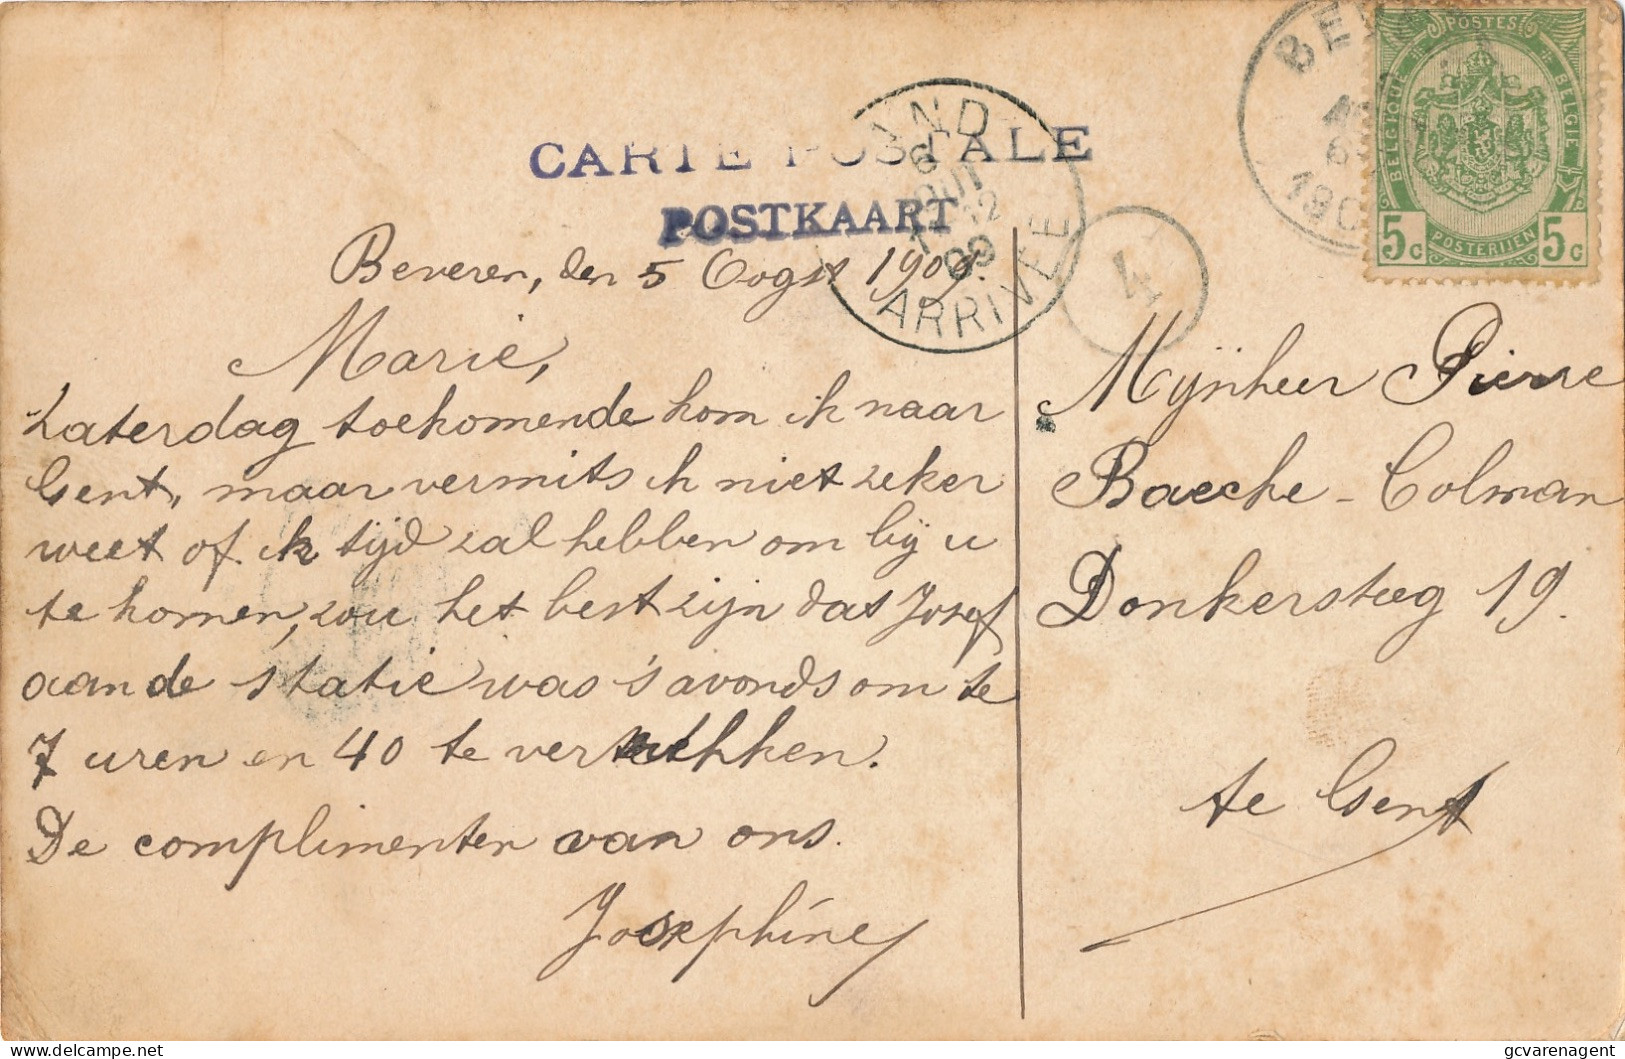 CARTE POSTALE
POSTKAART
ARRIVÉE
4
POSTES
BELGIQUE
BELGIE
5c POSTERIJEN 5c
Beveren, den 5 Oogst 1909.
Marie,
Zaterdag toekomende kom ik naar
Gent, maar vermits ik niet zeker
weet of ik tijd zal hebben om bij u
te komen, zou het best zijn dat Josef
aan de statie was 's avonds om te
7 uren en 40 te vertrekken.
De complimenten van ons.
Josephine
Mijnheer Pierre
Baecke - Colman
Donkersteeg 19.
te Gent
gcvarenagent